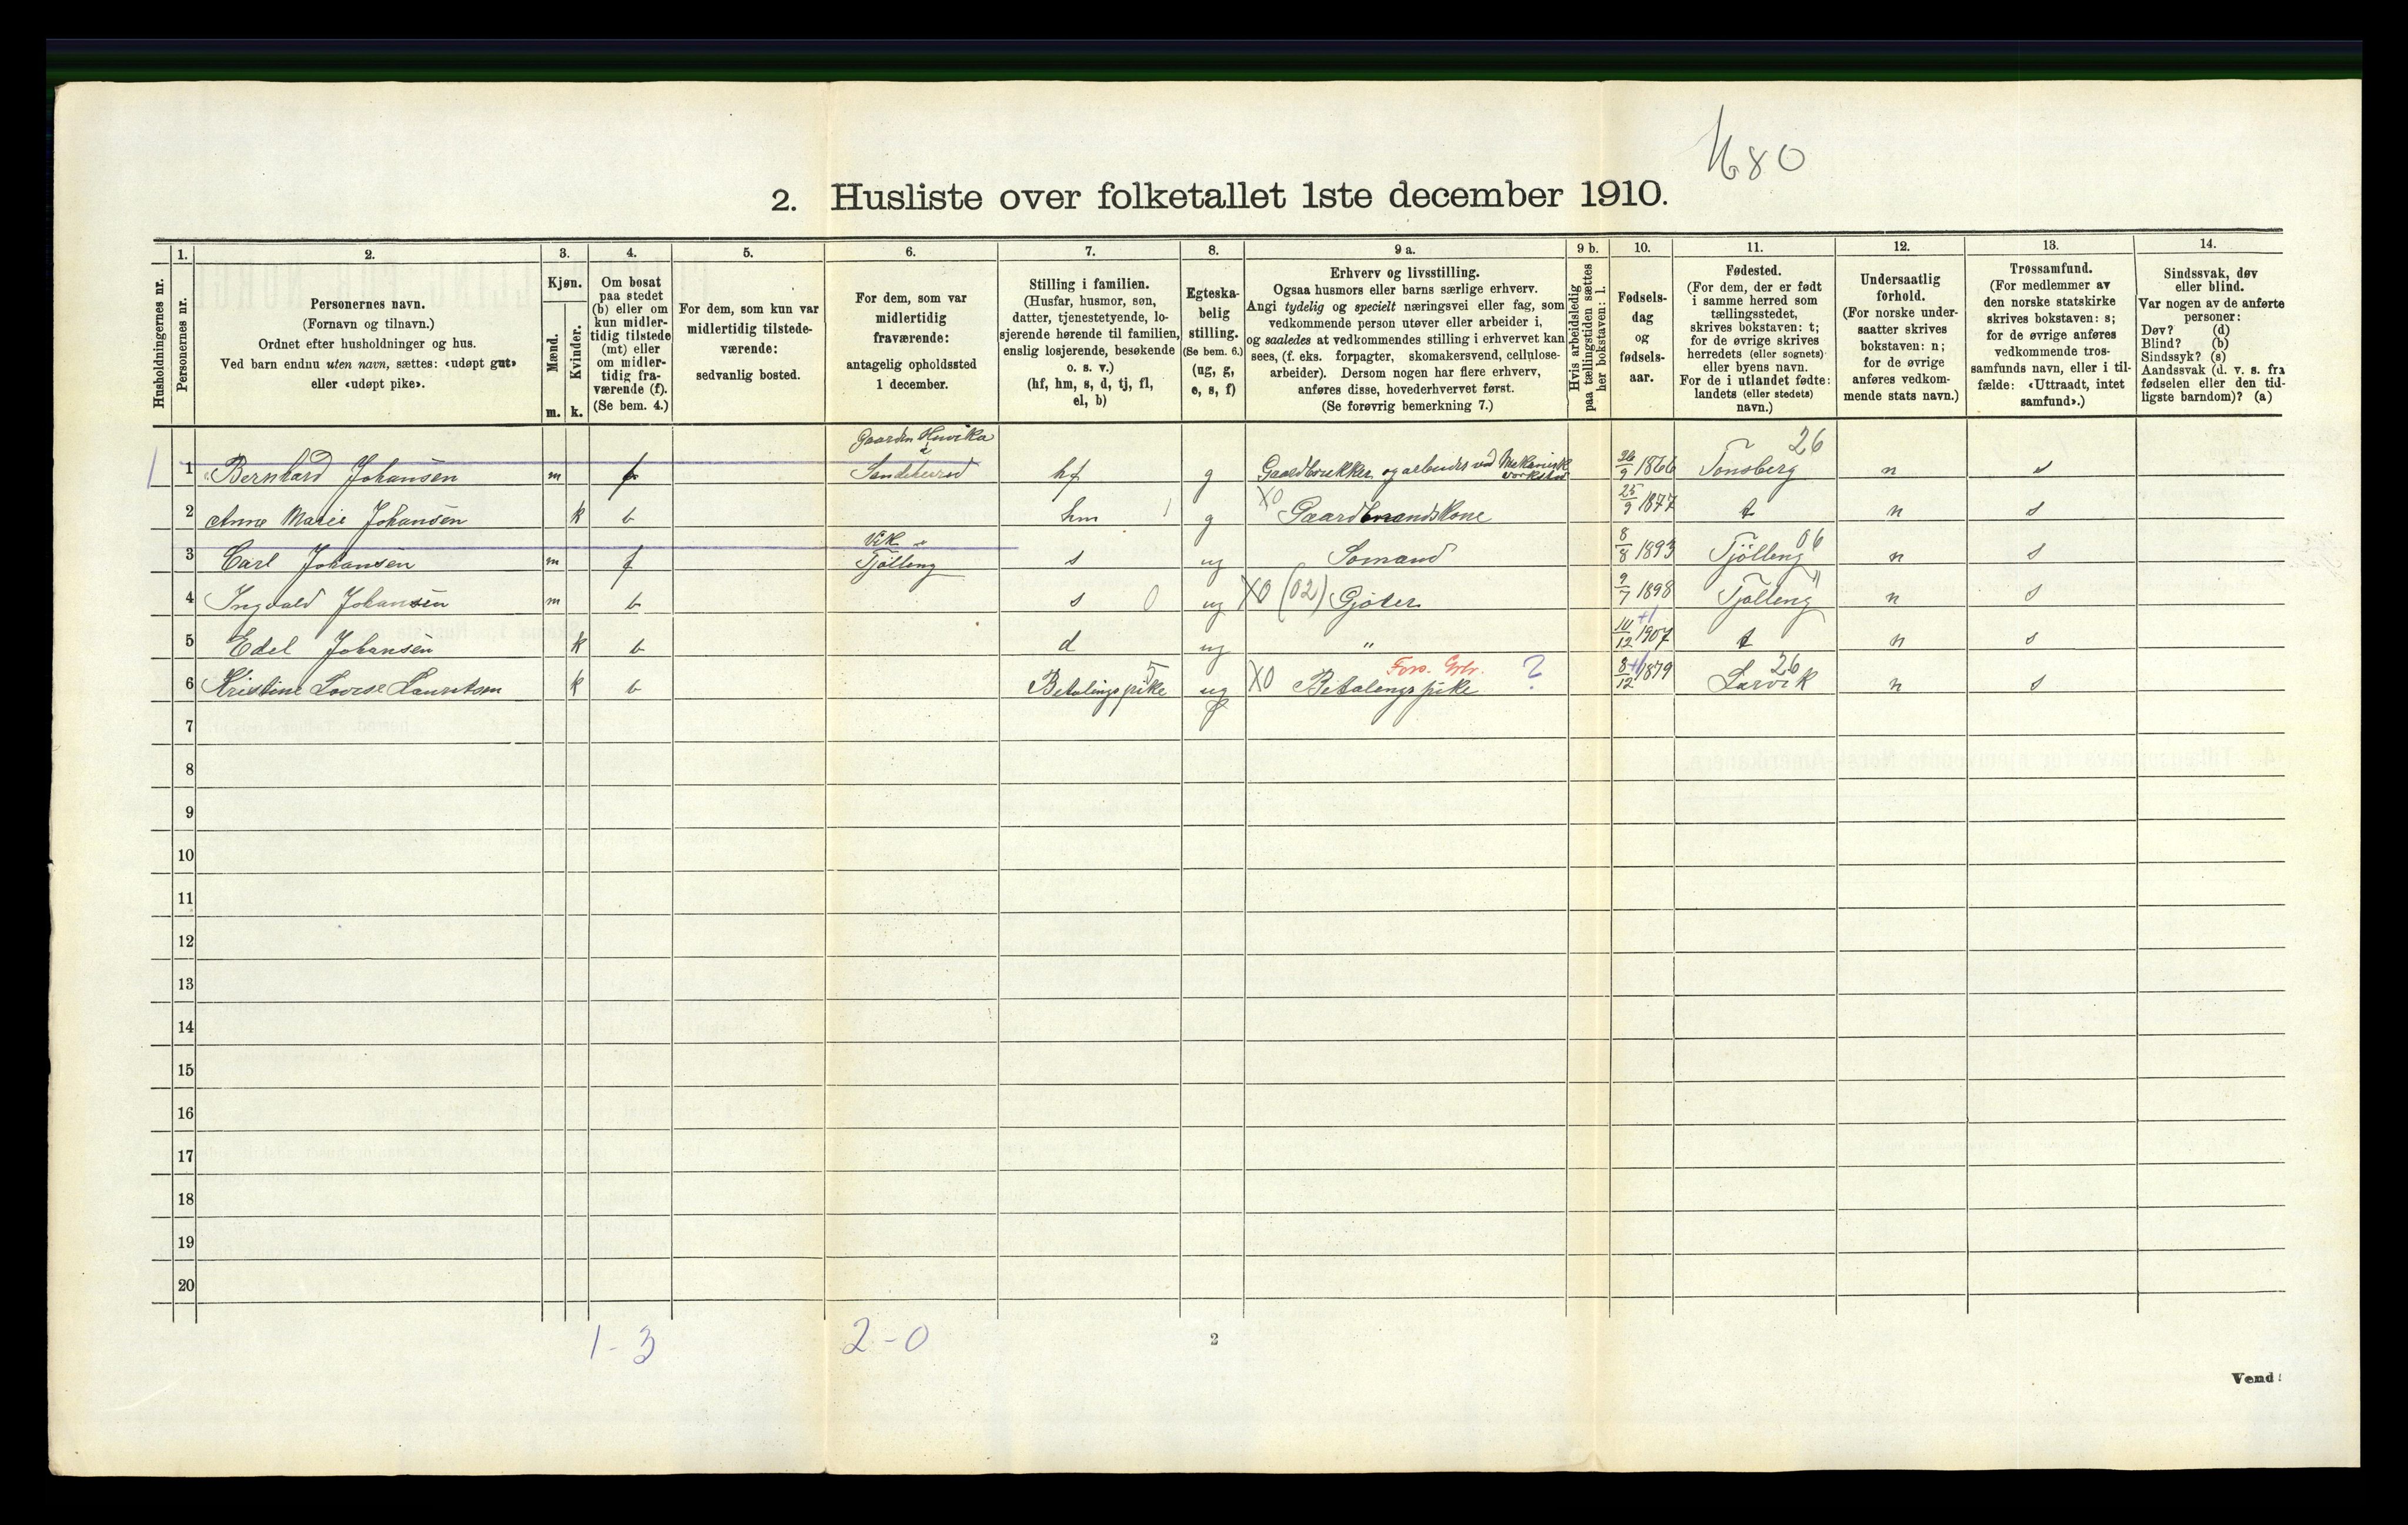 1680
2. Husliste over folketallet 1ste december 1910.
Husholdningernes nr.
1.
Personernes nr.
2.
Personernes navn.
(Fornavn og tilnavn.)
Ordnet efter husholdninger og hus.
Ved barn endnu uten navn, sættes: «udøpt gut»
eller «udøpt pike».
3.
Kjøn.
Mænd.
Kvinder.
m. k.
4.
Om bosat
paa stedet
(b) eller om
kun midler-
tidig tilstede
(mt) eller
om midler-
tidig fra-
værende (f).
(Se bem. 4.)
5.
For dem, som kun var
midlertidig tilstede-
værende:
sedvanlig bosted.
6.
For dem, som var
midlertidig
fraværende:
antagelig opholdssted
1 december.
7.
Stilling i familien.
(Husfar, husmor, søn,
datter, tjenestetyende, lo-
sjerende hørende til familien,
enslig losjerende, besøkende
o. s. v.)
(hf, hm, s, d, tj, fl,
el, b)
8.
Egteska-
belig
stilling.
(Se bem. 6.)
(ug, g,
e, s, f)
9 a.
Erhverv og livsstilling.
Ogsaa husmors eller barns særlige erhverv.
Angi tydelig og specielt næringsvei eller fag, som
vedkommende person utøver eller arbeider i,
og saaledes at vedkommendes stilling i erhvervet kan
sees, (f. eks. forpagter, skomakersvend, cellulose-
arbeider). Dersom nogen har flere erhverv,
anføres disse, hovederhvervet først.
(Se forøvrig bemerkning 7.)
9 b.
Hvis arbeidsledig
paa tællingstiden sættes
her bokstaven: l.
10.
Fødsels-
dag
og
fødsels-
aar.
11.
Fødested.
(For dem, der er født
i samme herred som
tællingsstedet,
skrives bokstaven: t;
for de øvrige skrives
herredets (eller sognets)
eller byens navn.
For de i utlandet fødte:
landets (eller stedets)
navn.)
12.
Undersaatlig
forhold.
(For norske under-
saatter skrives
bokstaven: n;
for de øvrige
anføres vedkom-
mende stats navn.)
13.
Trossamfund.
(For medlemmer av
den norske statskirke
skrives bokstaven: s;
for de øvrige anføres
vedkommende tros-
samfunds navn, eller i til-
fælde: «Uttraadt, intet
samfund».)
14.
Sindssvak, døv
eller blind.
Var nogen av de anførte
personer:
Døv? (d)
Blind? (b)
Sindssyk? (s)
Aandssvak (d. v. s. fra
fødselen eller den tid-
ligste barndom)? (a)
Gaarden 26
1 1 Bernhard Johansen m f Sandeherred hf g Gaardbrukker og arbeider ved Mekanisk 26/9 1866 Tønsberg n s
2 Anne Marie Johansen k b hm g X0 Gaardmandskone 25/9 1877 t n s
Vik i 06
3 Carl Johansen m f Tjølling s ug Sømand 8/8 1893 Tjølleng n s
4 Ingvald Johansen m b s 0 ug X0 (02) Gjøter 9/7 1898 Tjølleng " n s
5 Edel Johansen k b d ug " 10/12 1907 t n s
5 Fors. ? 26
6 Kristine Lovise Lauritsen k b Betalingspike ug X0 Betalengspike 8/12 1879 Larvik n s
7
8
9
10
11
12
13
14
15
16
17
18
19
20
1 - 3 2 - 0
2
Vend!